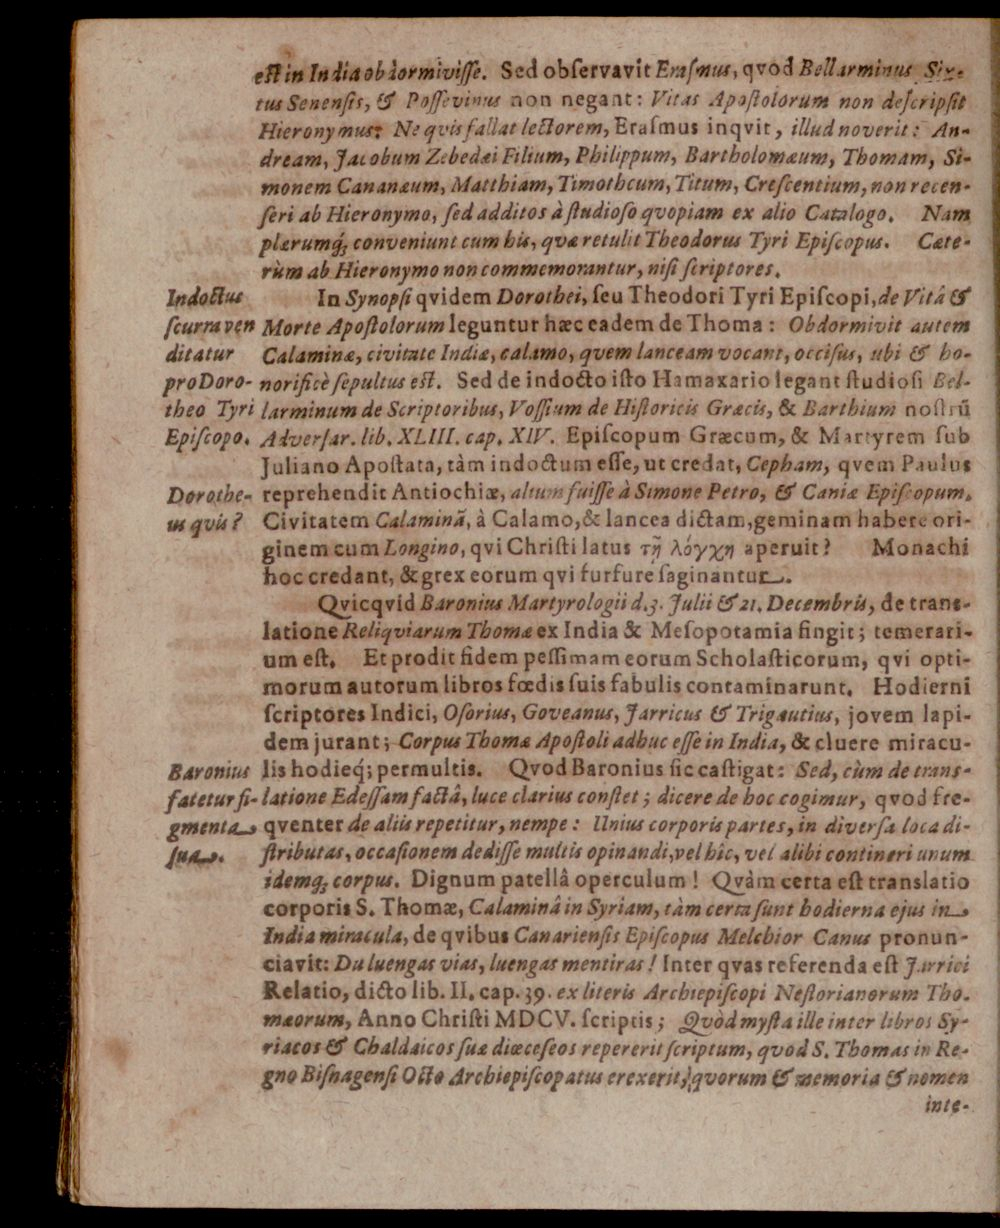 est in India obdormivisse. Sed observavit Erasmus, qvod Bellarminus Six-
tus Senensis, & Possevinus non negant: Vitas Apostolorum non descripsit
Hieronymus: Ne qvis fallat lectorem, Erasmus inqvit, illud noverit: An-
dream, Jacobum Zebedæi Filium, Philippum, Bartholomæum, Thomam, Si-
monem Cananæum, Matthiam, Timotheum, Titum, Crescentium, non recen-
seri ab Hieronymo, sed additos à studioso qvopiam ex alio Catalogo. Nam
pleerumq; conveniunt cum his, qvæ retulit Theodorus Tyri Episcopus. Cæte-
rùm ab Hieronymo non commemorantur, nisi scriptores.
Indoctus
scurra ven
ditatur
pro Doro-
theo Tyri
Episcopo.
In Synopsi qvidem Dorothei, seu Theodori Tyri Episcopi, de Vitâ &
Morte Apostolorum leguntur hæc eadem de Thoma: Obdormivit autem
Calaminæ, civitate Indiæ, calamo, qvem lanceam vocant, occisus, ubi & ho-
norificè sepultus est. Sed de indocto isto Hamaxario legant studiosi Bel-
larminum de Scriptoribus, Vossium de Historicis Græcis, & Barthium nostrũ
Adversar. lib. XLIII. cap. XIV. Episcopum Græcum, & Martyrem sub
Juliano Apostata, tàm indoctum esse, ut credat, Cepham, qvem Paulus
Dorothe-
us qvis?
reprehendit Antiochiæ, alium fuisse à Simone Petro, & Caniæ Episcopum.
Civitatem Calaminã, à Calamo, & lancea dictam, geminam habere ori-
ginem cum Longino, qvi Christi latus τῇ λόγχη aperuit? Monachi
hoc credant, & grex eorum qvi furfure saginantur.
Qvicqvid Baronius Martyrologii d. 3. Julii & 21. Decembris, de trans-
latione Reliqviarum Thomæ ex India & Mesopotamia fingit; temerari-
um est. Et prodit fidem pessimam eorum Scholasticorum, qvi opti-
morum autorum libros fœdis suis fabulis contaminarunt. Hodierni
scriptores Indici, Osorius, Goveanus, Jarricus & Trigautius, jovem lapi-
dem jurant; Corpus Thomæ Apostoli adhuc esse in India, & cluere miracu-
Baronius
fatetur fi-
gmenta
sua.
lis hodieq; permultis. Qvod Baronius sic castigat: Sed, cùm de trans-
latione Edessam factâ, luce clarius constet; dicere de hoc cogimur, qvod fre-
qventer de aliis repetitur, nempe: Unius corporis partes, in diversa loca di-
stributas, occasionem dedisse multis opinandi, vel hîc, vel alibi contineri unum
idemq; corpus. Dignum patellâ operculum! Qvàm certa est translatio
corporis S. Thomæ, Calaminâ in Syriam, tàm certa sunt hodierna ejus in
India miracula, de qvibus Canariensis Episcopus Melchior Canus pronun-
ciavit: Du luengas vias, luengas mentiras! Inter qvas referenda est Jarrici
Relatio, dicto lib. II. cap. 39. ex literis Archiepiscopi Nestorianorum Tho-
mæorum, Anno Christi MDCV. scriptis; Qvòd mysta ille inter libros Sy-
riacos & Chaldaicos suæ diœceseos repererit scriptum, qvod S. Thomas in Re-
gno Bisnagensi Octo Archiepiscopatus erexerit, qvorum & memoria & nomen
inte-